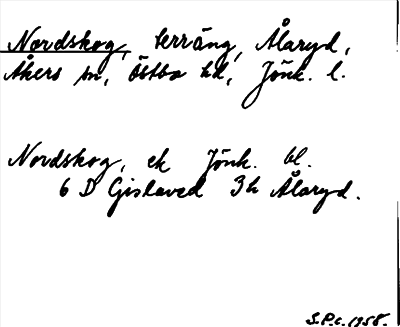 Nordskog, terräng, Ålaryd,
Åkers sn, Östbo hd, Jönk. l.
Nordskog, ek Jönk. bl.
6 D Gislaved 3h Ålaryd.
S.P.c. 1958.